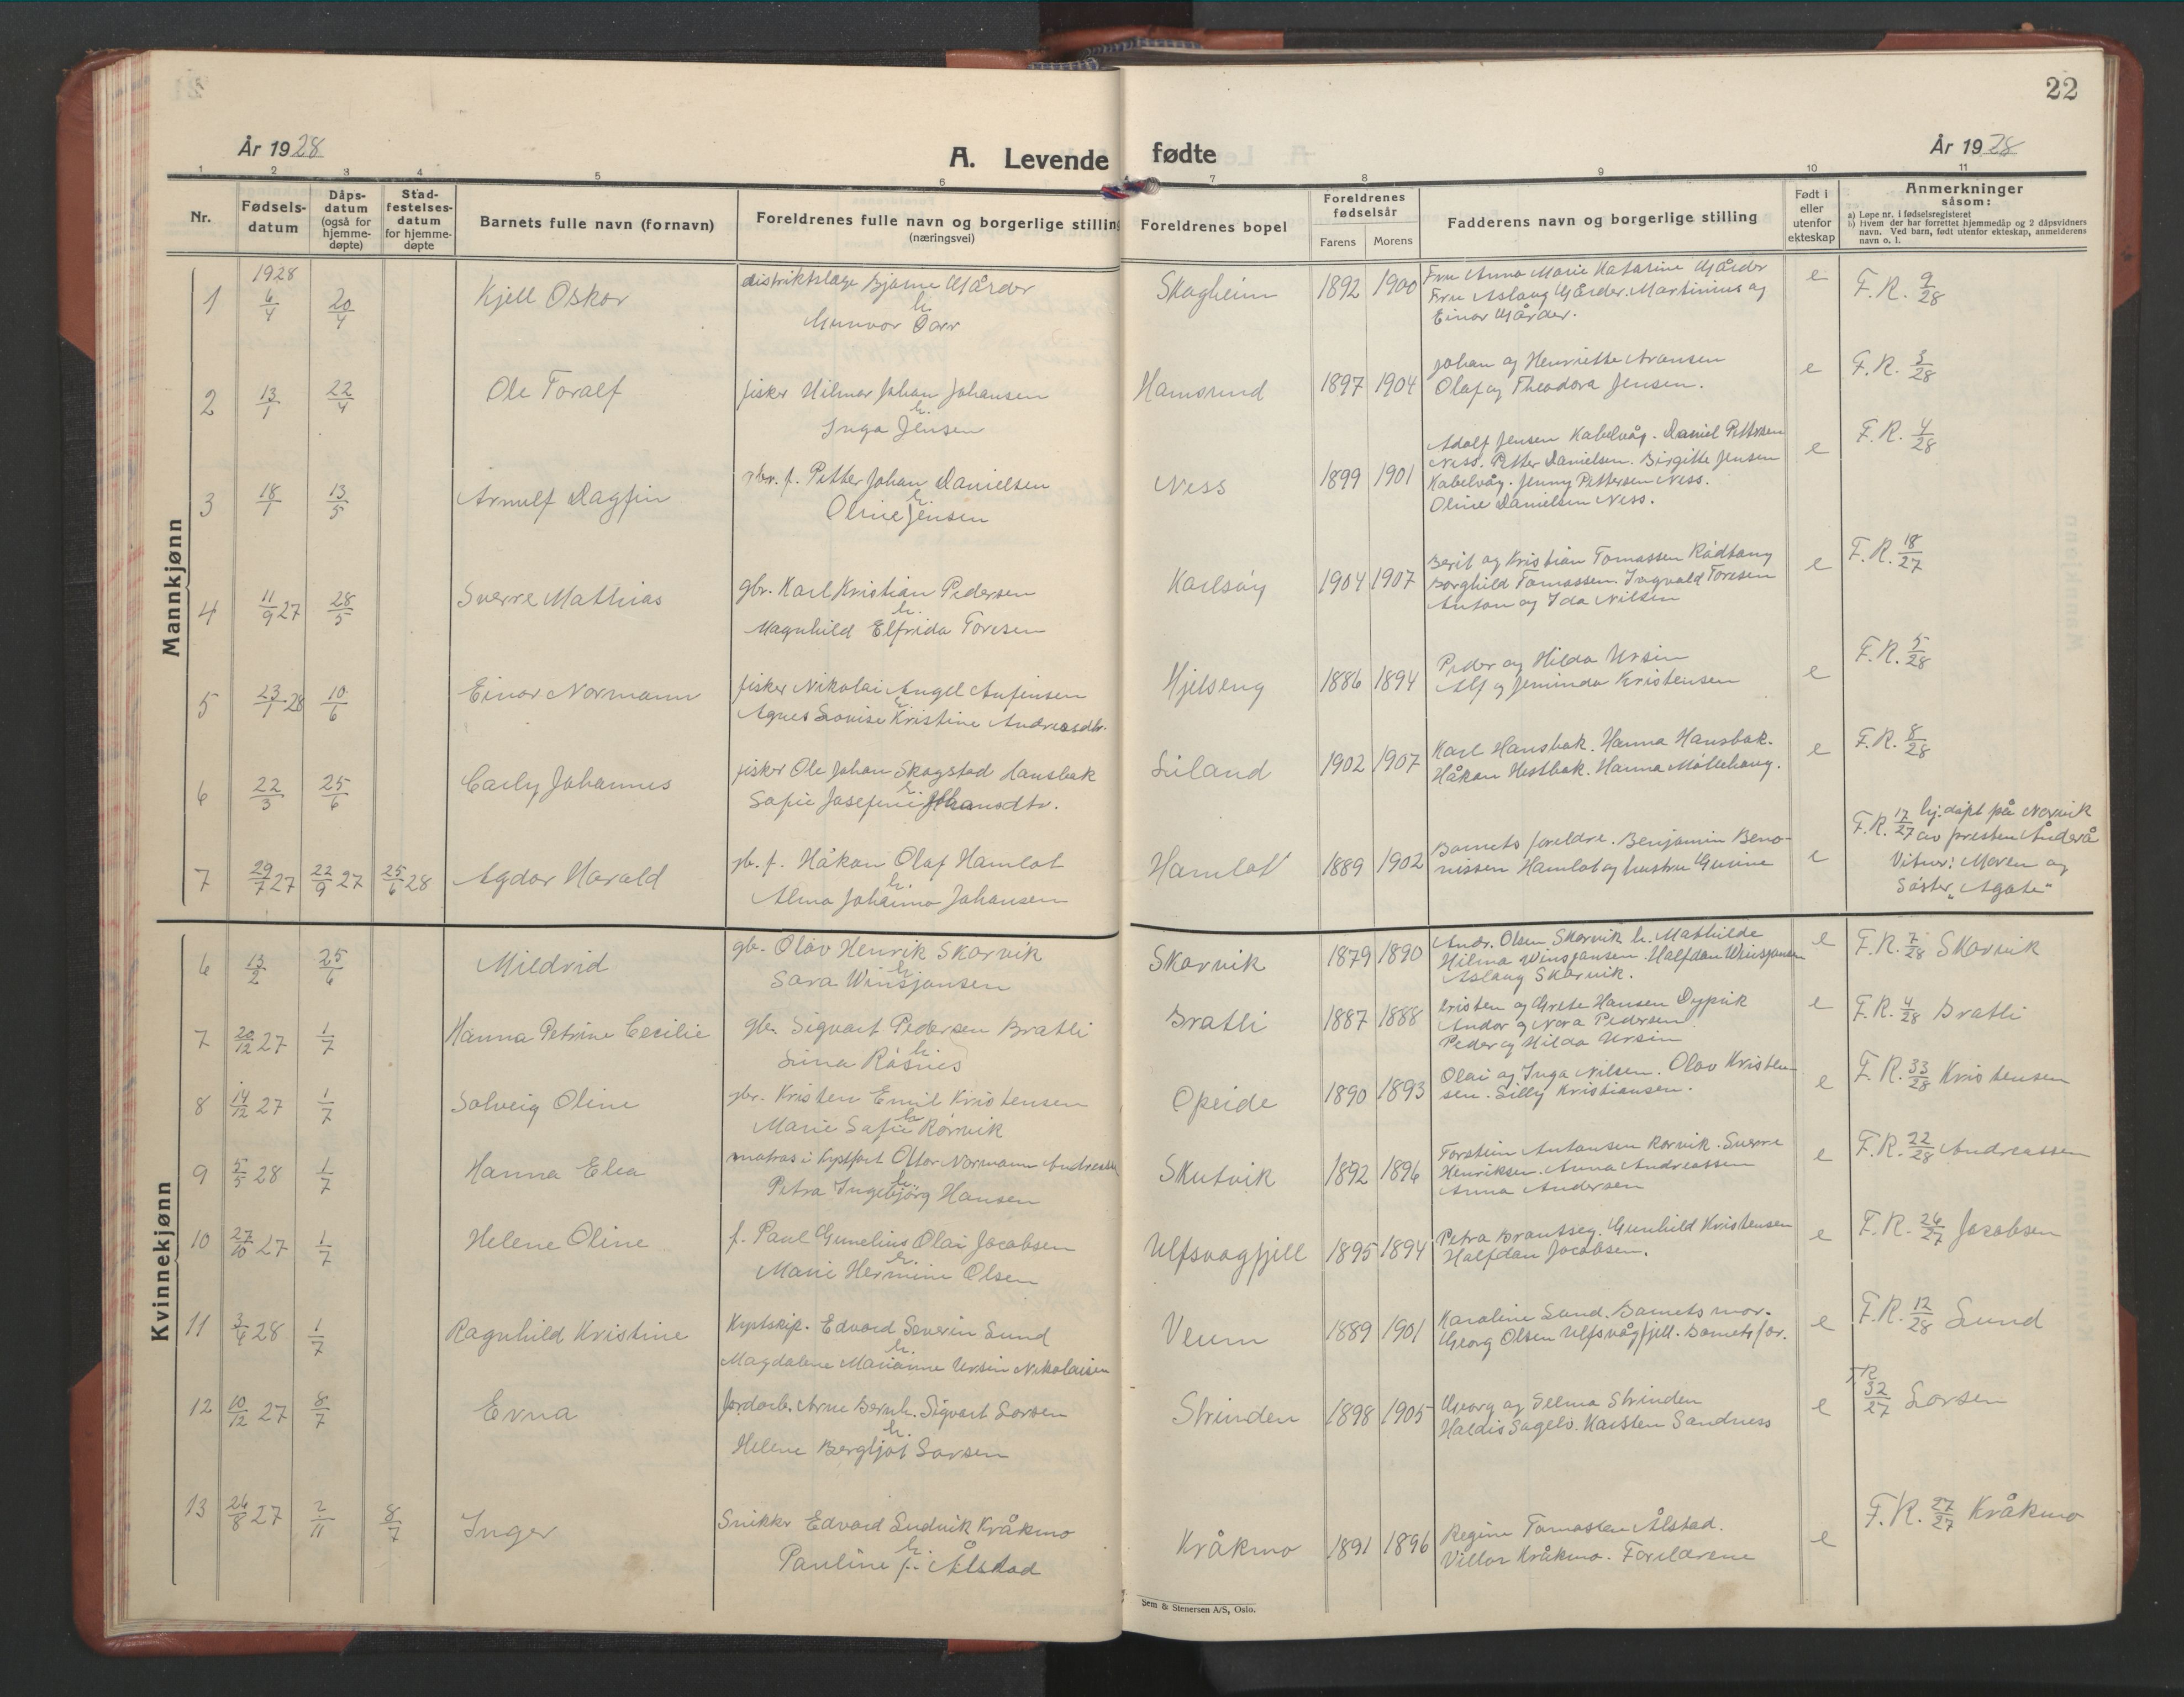 22
År 1928
A. Levende fødte
År 1928
1 2 3 4 5 6 7 8 9 10 11
Nr.
Fødsels-
datum
Dåps-
datum
(også for
hjemme-
døpte)
Stad-
festelses-
datum
for hjemme-
døpte
Barnets fulle navn (fornavn)
Foreldrenes fulle navn og borgerlige stilling
(næringsvei)
Foreldrenes bopel
Foreldrenes
fødselsår
Farens Morens
Fadderens navn og borgerlige stilling
Født i
eller
utenfor
ekteskap
Anmerkninger
såsom:
a) Løpe nr. i fødselsregisteret
b) Hvem der har forrettet hjemmedåp og 2 dåpsvidners
navn. Ved barn, født utenfor ekteskap, anmelderens
navn o. l.
Mannkjønn
1928
1 6/4 20/4 Kjell Oskar
distriktslæge Bjarne Gårder
h.
Gunvor Darr
Skogheim 1892 1900
Fru Anna Marie Katarine Gårder
Fru Aslaug Gårder. Martinius og
Einar Gårder.
e F.R. 9/28
2 13/1 22/4 Ole Toralf
fisker Hilmar Johan Johansen
h.
Inga Jensen
Hamsund 1897 1904
Johan og Henriette Aronsen
Olaf og Theodora Jensen.
e F.R. 3/28
3 18/1 13/5 Arnulf Dagfin
gbr. f. Petter Johan Danielsen
h.
Oline Jensen
Ness 1899 1901
Adolf Jensen Kabelvåg. Daniel Pettersen
Ness. Petter Danielsen. Birgitte Jensen
Kabelvåg. Jenny Pettersen Ness.
Oline Danielsen Ness.
e F.R. 4/28
4 11/9 27 28/5 Sverre Mathias
gbr. Karl Kristian Pedersen
h.
Magnhild Elfrida Toresen
Karlsøy 1904 1907
Berit og Kristian Tomassen Rødtang
Borghild Tomassen. Ingvald Toresen
Anton og Ida Nilsen
e F.R. 18/27
5 23/1 28 10/6 Einar Normann
fisker Nikolai Angel Anfinsen
h.
Agnes Lovise Kristine Andreasdtr.
Hjelseng 1886 1894
Peder og Hilda Ursin
Alf og Jeminda Kristensen
e F.R. 5/28
6 22/3 25/6 Carly Johannes
fisker Ole Johan Skogstad Hansbak
h.
Safie Josefine Johansdtr.
Liland 1902 1907
Karl Hansbak. Hanna Hansbak.
Håkon Hestbak. Hanna Møllehaug.
e F.R. 8/28
7 29/7 27 22/9 27 25/6 28 Agdor Harald
gb. f. Håkon Olaf Hamlot
h.
Alma Johanna Johansen
Hamlot 1889 1902
Barnets foreldre. Benjamin Beno-
nissen Hamlot og hustru Gurine
e F.R. 17/27 hj. døpt på Narvik
av presten Ånderå
Vitner: Moren og
Søster „Agate"
Kvinnekjønn
6 13/2 25/6 Mildrid
gb. Olav Henrik Skarvik
h.
Sara Winsjansen
Skarvik 1879 1890
Andr. Olsen Skarvik h. Mathilde
Hilma Winsjansen. Halfdan Winsjansen
Aslaug Skarvik.
e F.R. 7/28 Skarvik
7 20/12 27 1/7 Hanna Petrine Cecilie
gbr. Sigvart Pedersen Bratli
h.
Lina Råsnes
Bratli 1887 1888
Kristen og Grete Hansen Dypvik
Andor og Nora Pedersen
Peder og Hilda Ursin
e F.R. 4/28 Bratli
8 14/12 27 1/7 Solveig Oline
gbr. Kristen Emil Kristensen
h.
Marie Safie Rørvik
Opeide 1890 1893
Olai og Inga Nilsen. Olav Kristen-
sen. Silly Kristiansen.
e F.R. 33/28 Kristensen
9 5/5 28 1/7 Hanna Elea
matros i kystfart Ottar Normann Andreassen
h.
Petra Ingebjørg Hansen
Skutvik 1892 1896
Torstein Antonsen Rørvik. Sverre
Henriksen. Anna Andreassen
Anna Andersen
e F.R. 22/28 Andreassen
10 27/10 27 1/7 Helene Oline
f. Paul Gunelius Olai Jacobsen
h.
Marie Hermine Olsen
Ulfsvagfjell 1895 1894
Petra Brautseg. Gunhild Kristensen
Halfdan Jacobsen.
e F.R. 26/27 Jacobsen
11 3/4 28 1/7 Ragnhild Kristine
Kystskip. Edvard Severin Sund
h.
Magdalene Marianne Ursin Nikolaisen
Veum 1889 1901
Karoline Sund. Barnets mor.
Georg Olsen Ulfsvågfjell. Barnets far.
e F.R. 12/28 Sund
12 10/12 27 8/7 Erna
Jordarb. Arne Bernh. Sigvart Larsen
h.
Helene Bergljot Larsen
Strinden 1898 1905
Georg og Selma Strinden
Haldis Sagelv. Karsten Sandnes
e F.R. 32/27 Larsen
13 26/8 27 2/11 8/7 Inger
Snikker Edvard Ludvik Kråkmo
h.
Pauline f. Ålstad
Kråkmo 1891 1896
Regine Tomassen Ålstad.
Villar Kråkmo. Foreldrene
e F.R. 27/27 Kråkmo
Sem & Stenersen A/S, Oslo.